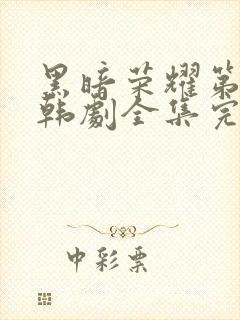 黑暗荣耀第
韩剧全集完
中彩票